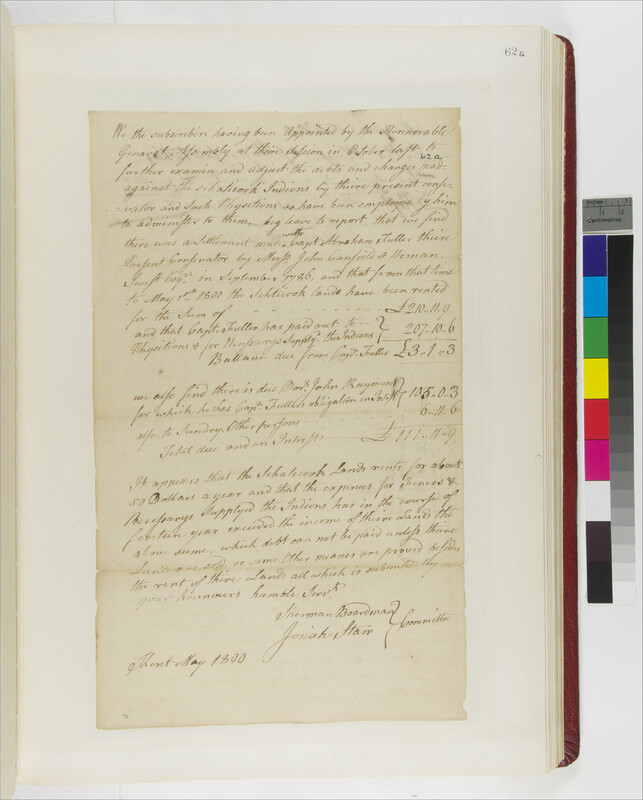 62a
We the subscribers having been appointed by the Honnorable
General Assembly at their Session in October last to
62 a
further examin and adjust the debts and charges made
against the Schatecook Indians by theire present conse-
-vator and Such Physitions as have been employed by him
to administer to them, beg leave to report that we find
there was a settlement made with Capt Abraham Fuller theire
Present Consevator by Messrs John Canfield & Heman
Swift Esqrs in September 1786, and that from that time
to May 1st 1800 the Schticook lands have been rented
for the Sum of £210-11-9
and that Capt Fuller has paid out to
Physitions & for Nessessarys Supplyd the Indians } 207-10-6
Ballance due from Capt Fuller £3-1-3
we also find there is due Doct John Raymont
for which he has Capt Fullers obligation on Intst } 105-0-3
also to Sundry Other persons 6-11-6
Total due and on Intrest £111-11-9
It appears that the Schatecook Lands rents for about
50 Dollars a year and that the expences for Fences &
Necessarys Supplyed the Indians has in the course of
forteen year exceeded the income of theire Lands the
above sume which debt can not be paid unless there
Lands are sold, or some Other meanes are provid besides
the rent of there Land all which is submited by
your honnours humble Servts
Sherman Boardman
Josiah Starr } Committe
Kent May 1800
Inches 1 2
Centimetres